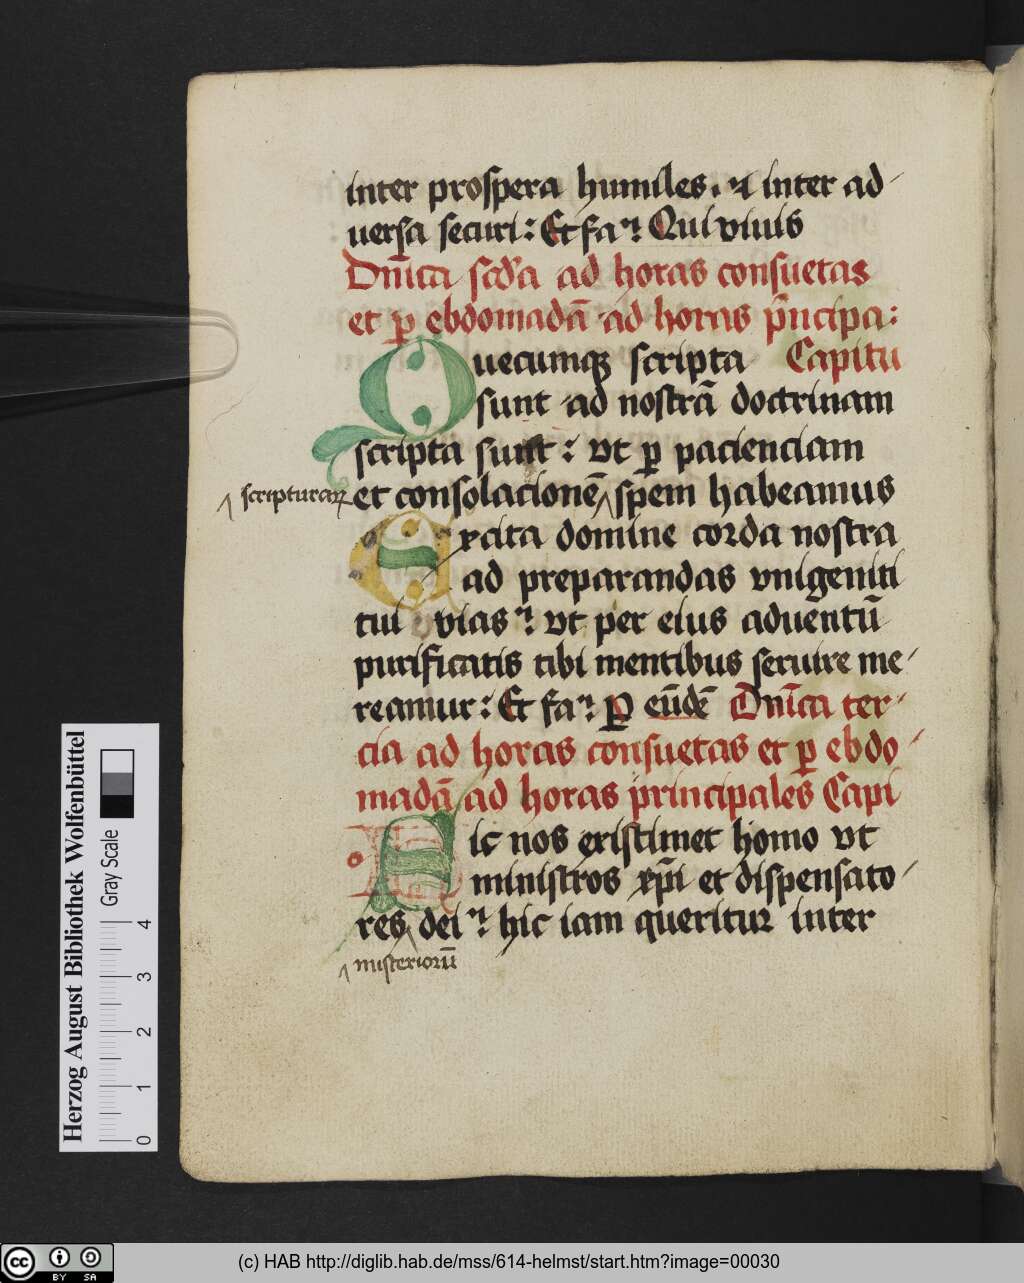 inter prospera humiles. et inter ad-
uersa securi: Et fa⁊ Qui viuis
Dn̄ica scd'a ad horas consuetas
et ꝑ ebdomadā ad horas p̄ncipa:
Quecumqꝫ scripta Capitu
sunt ad nostrā doctrinam
scripta sunt: vt ꝑ pacienciam
scripturaꝝ et consolacionē spem habeamus
Excita domine corda nostra
ad preparandas vnigeniti
tui vias⁊ vt per eius aduentū
purificatis tibi mentibus seruire me-
reamur: Et fa⁊ P eūdē Dn̄ica ter-
cia ad horas consuetas et ꝑ ebdo-
madā ad horas principales Capi
Sic nos existimet homo vt
ministros xp̄i et dispensato-
res dei⁊ hic iam queritur inter
misteriorū
Herzog August Bibliothek Wolfenbüttel
Gray Scale
0 1 2 3 4
cc BY SA
(c) HAB http://diglib.hab.de/mss/614-helmst/start.htm?image=00030